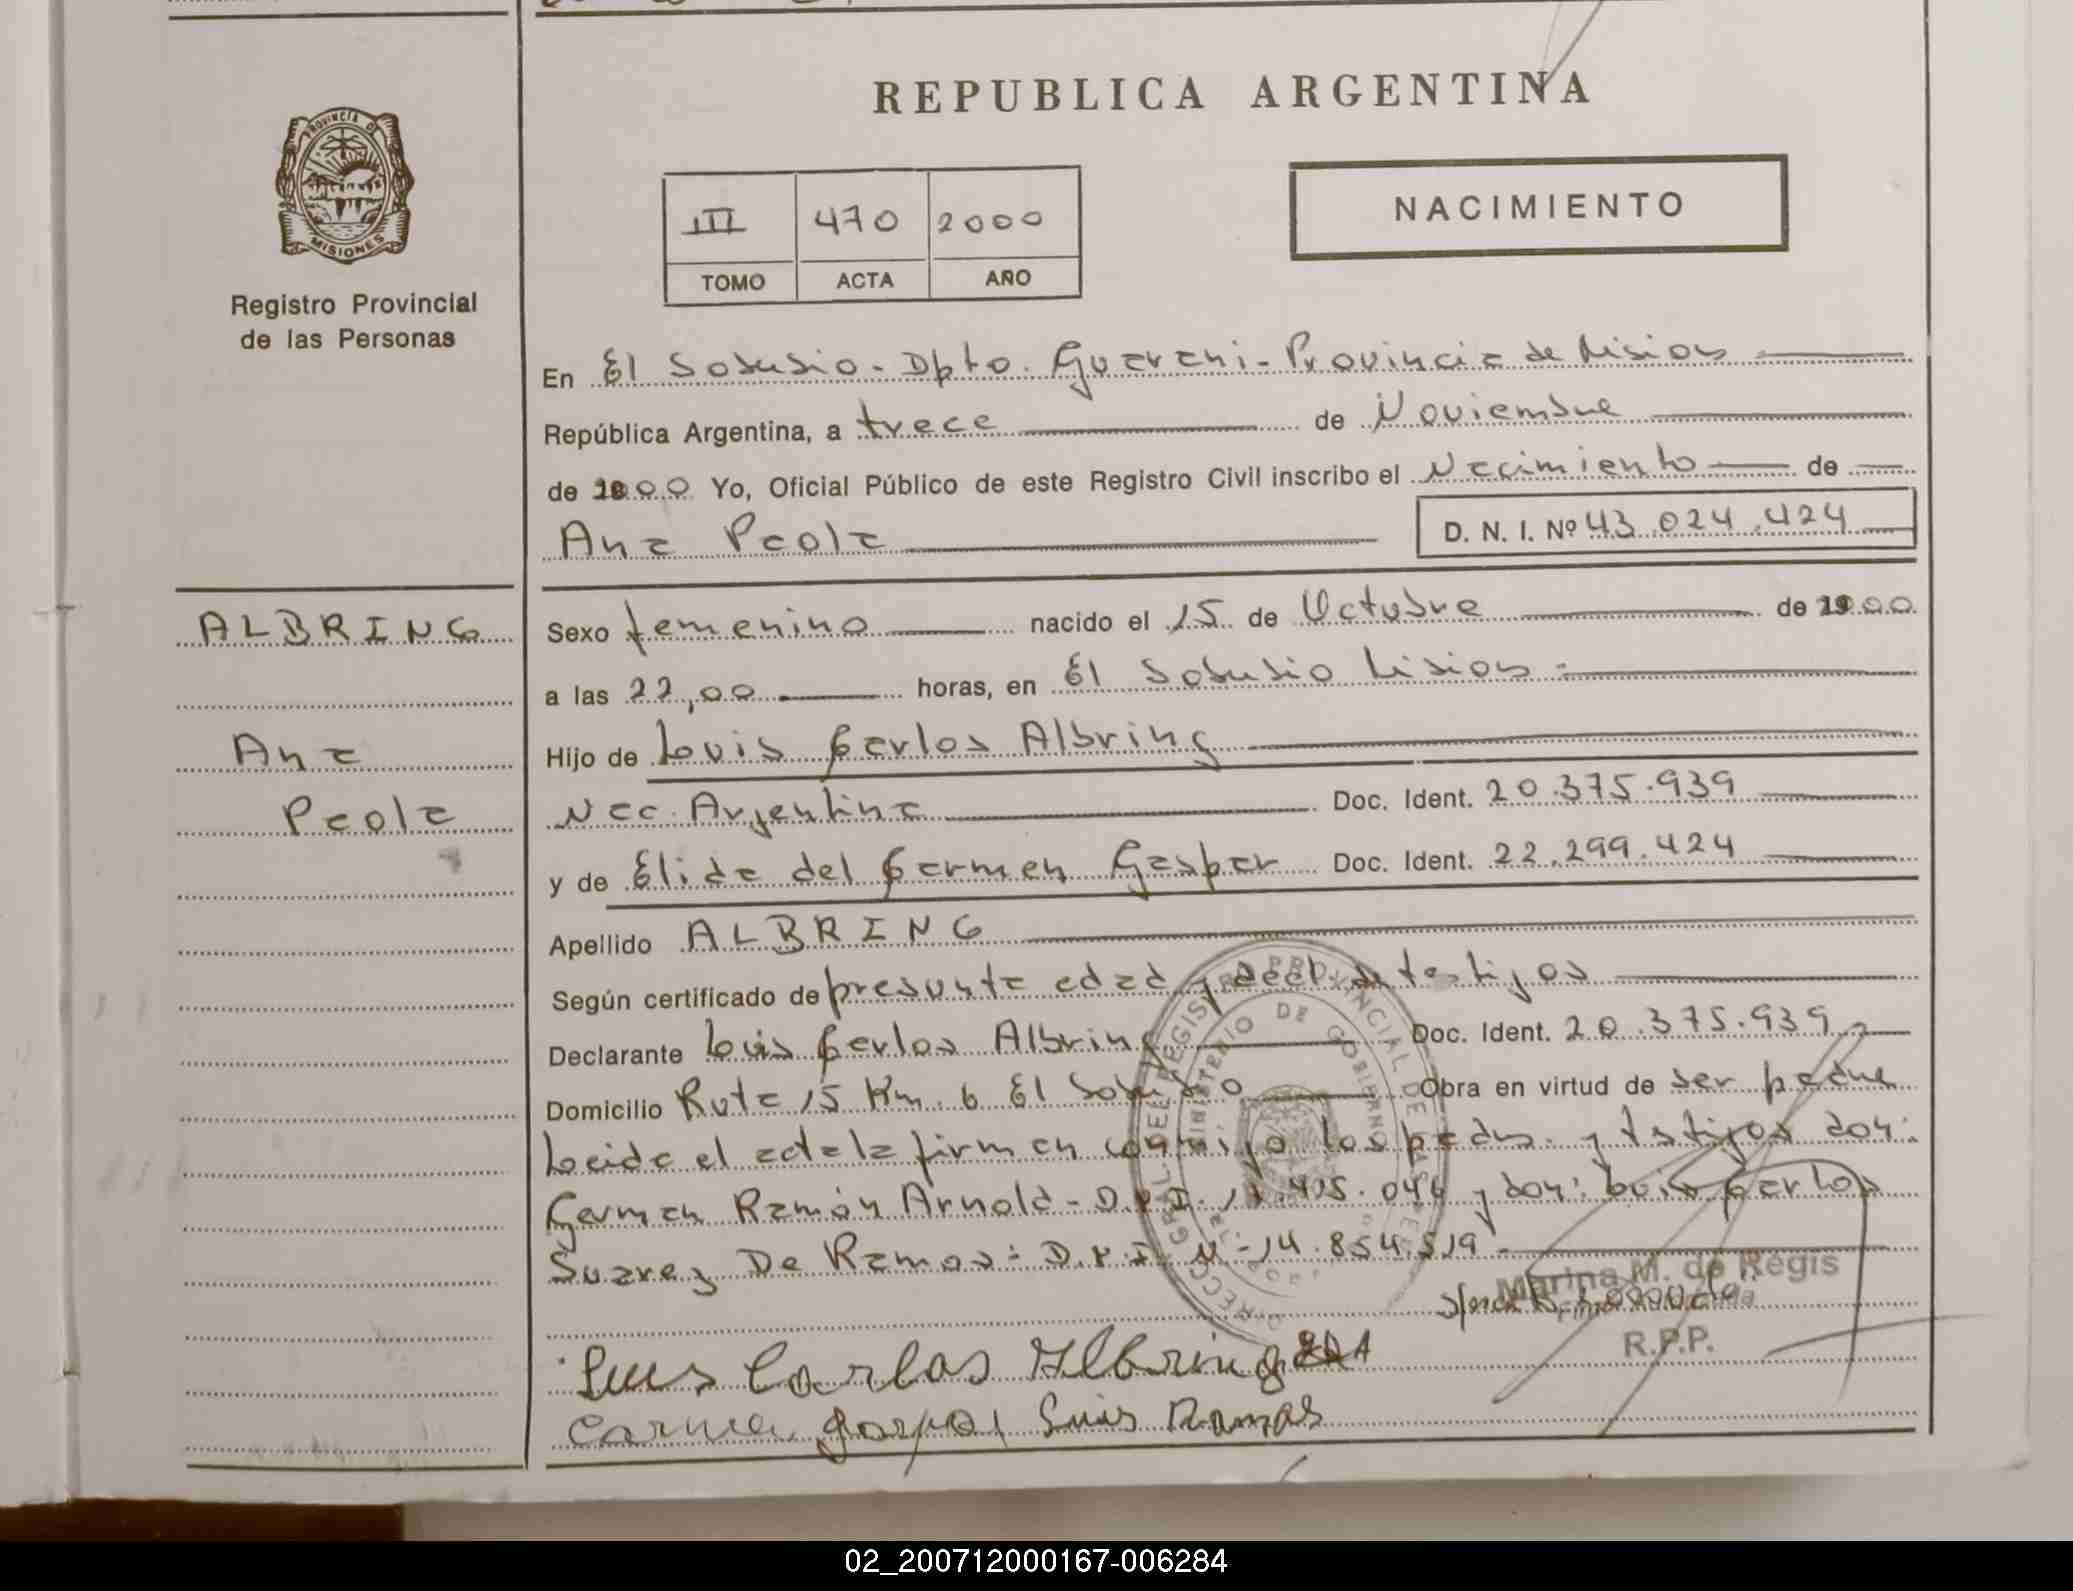 REPUBLICA ARGENTINA
PROVINCIA DE
MISIONES
Registro Provincial
de las Personas
III 470 2000
TOMO ACTA AÑO
NACIMIENTO
En El Soberbio - Dpto. Guarani - Provincia de Misiones
República Argentina, a trece de Noviembre
de 2000 Yo, Oficial Público de este Registro Civil inscribo el Nacimiento de
Ana Paola
D. N. I. Nº 43.024.424
ALBRING
Ana
Paola
Sexo femenino nacido el 15 de Octubre de 2000
a las 22,00 horas, en El Soberbio Misiones
Hijo de Luis Carlos Albring
Nac. Argentina Doc. Ident. 20.375.939
y de Elida del Carmen Gaspar Doc. Ident. 22.299.424
Apellido ALBRING
Según certificado de presunta edad y decl. de testigos
Declarante Luis Carlos Albring Doc. Ident. 20.375.939
Domicilio Ruta 15 Km. 6 El Soberbio Obra en virtud de ser padre
Leida el acta la firman conmigo los padres y testigos don:
German Ramón Arnold - D.N.I. y don: Luis Carlos
Suarez De Ramos: D.N.I. Nº 14.854.519
Marina M. de Regis
R.P.P.
Luis Carlos Albring
Carmen Gaspar Luis Ramos
02_200712000167-006284